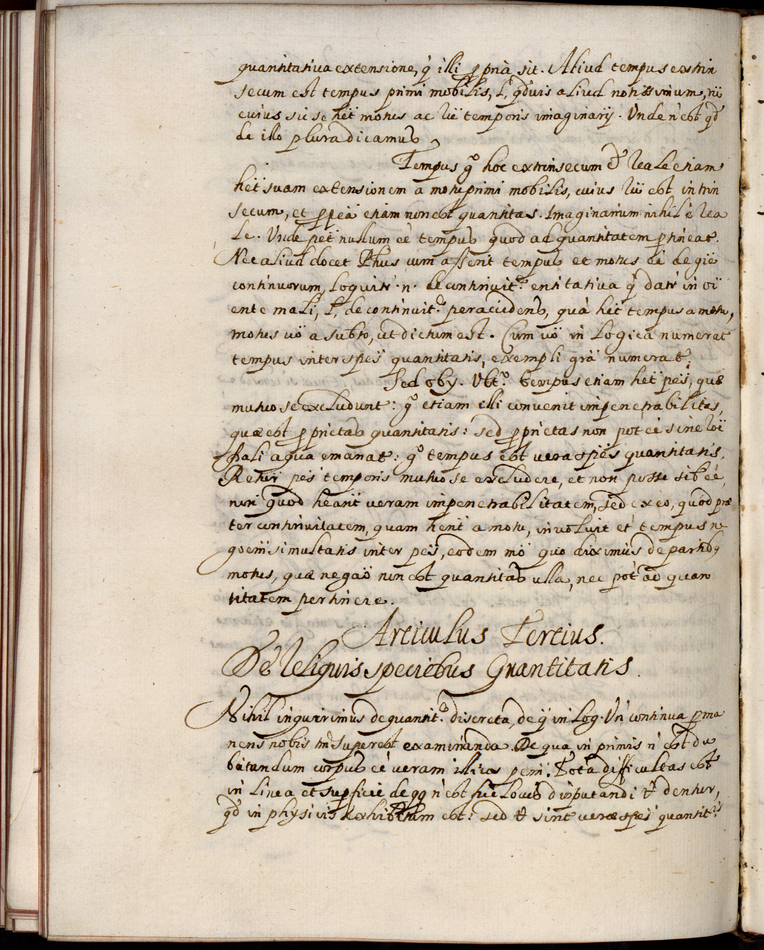 quantitatiua extensione, q̃ illi ꝓpria sit. Aliud tempus extrin
secum est tempus primi mobilis, l, qduis aliud
cuius sic se het motus ac tempus imaginarij. Unde n̄ est qd
de illo plura dicamus
Tempus g° hoc extrinsecum reale etiam
het suam extensionem a motu primi mobilis, cuius est intrin
secum, et ꝓpea etiam non est quantitas. Imaginarium nihil ē rea
le. Unde pet nullum eē tempus quod ad quantitatem ꝑtineat.
Nec aliud docet Phus cum asserit tempus et motus eē de
continuorum, loquitr .n. de continuit.e entitatiua q̃ datr in oi
ente mali, l, de continuit.e per accidens, quā het tempus a motu,
motus uō a subto, ut dictum est. Cum uō in Logica numerat
tempus inter spēs quantitatis, exempli grā numerat.
Sed obij. Ubt.° tempus etiam het ptes, quæ
mutuo se excludunt: g° etiam illi conuenit impenetrabilitas,
quæ est ꝓprietas quantitatis: sed ꝓprietas non pot eē sine
a qua emanat: g° tempus est uera spēs quantitatis.
ptes temporis mutuo se excludere, et non posse sibi eē,
non quod heant ueram impenetrabilitatem, sed ex eo, quod præ
ter continuitatem, quam hent a motu, inuoluit et tempus ne
goem simultatis inter ptes, eodem mō quo diximus de partibus
motus, quæ negaō non est quantitas ulla, nec pot ad quan
titatem pertinere.
Articulus Tertius.
De Reliquis speciebus Quantitatis.
Nihil inquirimus de quantit.e discreta, de q̃ in Log. continua ꝑma
nens nobis tm̄ superest examinanda. De qua in primis n̄ est du
bitandum corpus eē ueram illius Tota difficultas est
in Linea et supficie de qq n̄ est hic locus disputandi dentur,
qd in physicis exhibitum est: sed sint ueræ spēs quantit.s